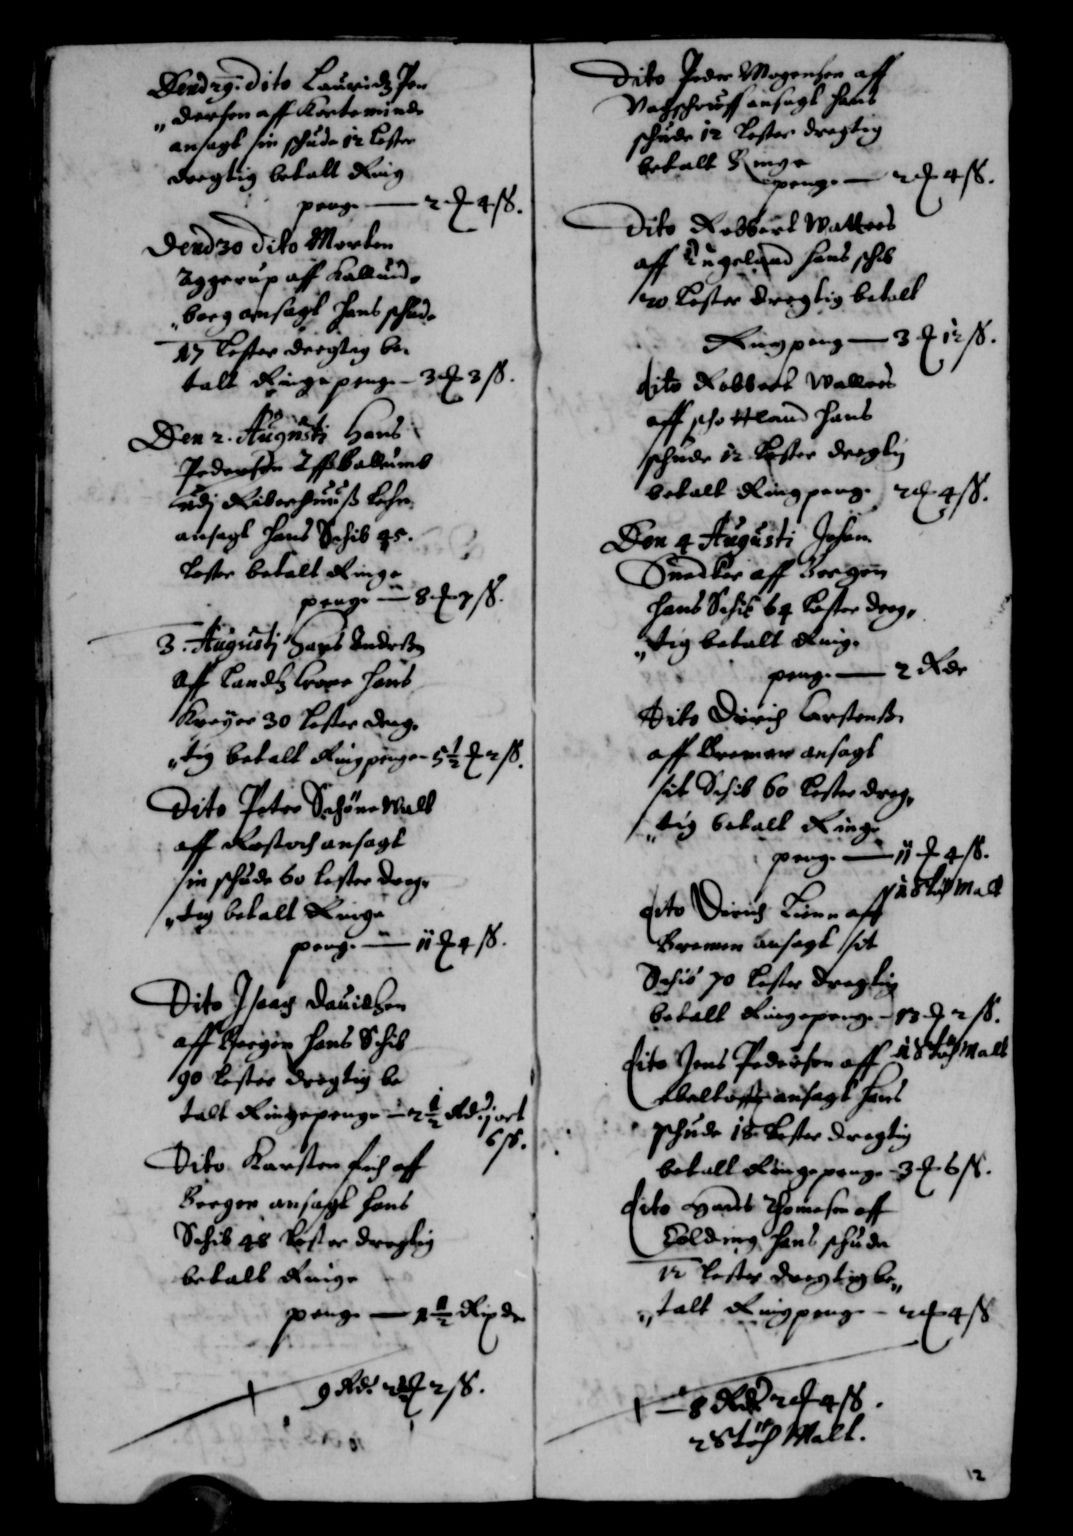 Dend 29. dito Lauridtz Pe-
dersen aff Kerteminde
ansagt sin schude 12 lester
dregtig betalt Ring
penge — 2 ₰ 4 ß.
Dend 30 dito Morten
Aggerup aff Kallund-
borg ansagt hans schude
17 lester dregteg be-
talt Ringepenge - 3 ₰ 3 ß.
Den 2. Augusti Hans
Pedersen
udj Riberhuuß Lehn
ansagt hans Schib 45.
lester betalt Ringe
penge — 8 ₰ 7 ß.
3. Augusti Hans Anderßen
Aff Landtz Crone hans
Kreyer 30 lester dreg-
tig betalt Ringpenge - 5½ ₰ 2 ß.
Dito Peter Schönewalt
aff Rostoch ansagt
sin schude 60 lester dreg-
tig betalt Ringe
penge — 11 ₰ 4 ß.
Dito Isaach Dauidtzen
aff Bergen hans Schib
90 lester dregtig be
talt Ringepenge - 2½ Rd. j ort
6 ß.
Dito Karsten aff
Bergen ansagt hans
Schib 48 lester dregtig
betalt Ringe
penge — 1½ Rixdr
9 Rdr 2½ ₰ 2 ß.
Dito Peder Mogensen aff
ansagt hans
schude 12 lester dregtig
betalt Ringe
penge — 2 ₰ 4 ß.
Dito Robbert Watters
aff Engeland hans schib
20 lester dregtig betalt
Ringpeng — 3 ₰ 12 ß.
dito Robbert Wallers
aff schottland hans
schude 12 lester dregtig
betalt Ringpenge 2 ₰ 4 ß.
Den 4 Augusti Johan
Snedker aff Bergen
hans Schib 64 lester dreg-
tig betalt Ring-
penge — 2 Rdr
Dito Dirich Carstenß
aff Bremen ansagt
sit Schib 60 lester dreg-
tig betalt Ringe
penge — 11 ₰ 4 ß.
dito Dirich Lienn aff 1 Malt
Bremen ansagt sit
Schib 70 lester dregtig
betalt Ringepenge - 13 ₰ 2 ß.
dito Jens Pedersen aff 1 Malt
Ebeltoft ansagt hans
schude 18 lester dregtig
betalt Ringepenge - 3 ₰ 6 ß.
dito Hans Thomesen aff
Colding hans schude
12 lester dregtig be-
talt Ringpenge - 2 ₰ 4 ß
8 Rdr 2 ₰ 4 ß.
2 Malt.
12